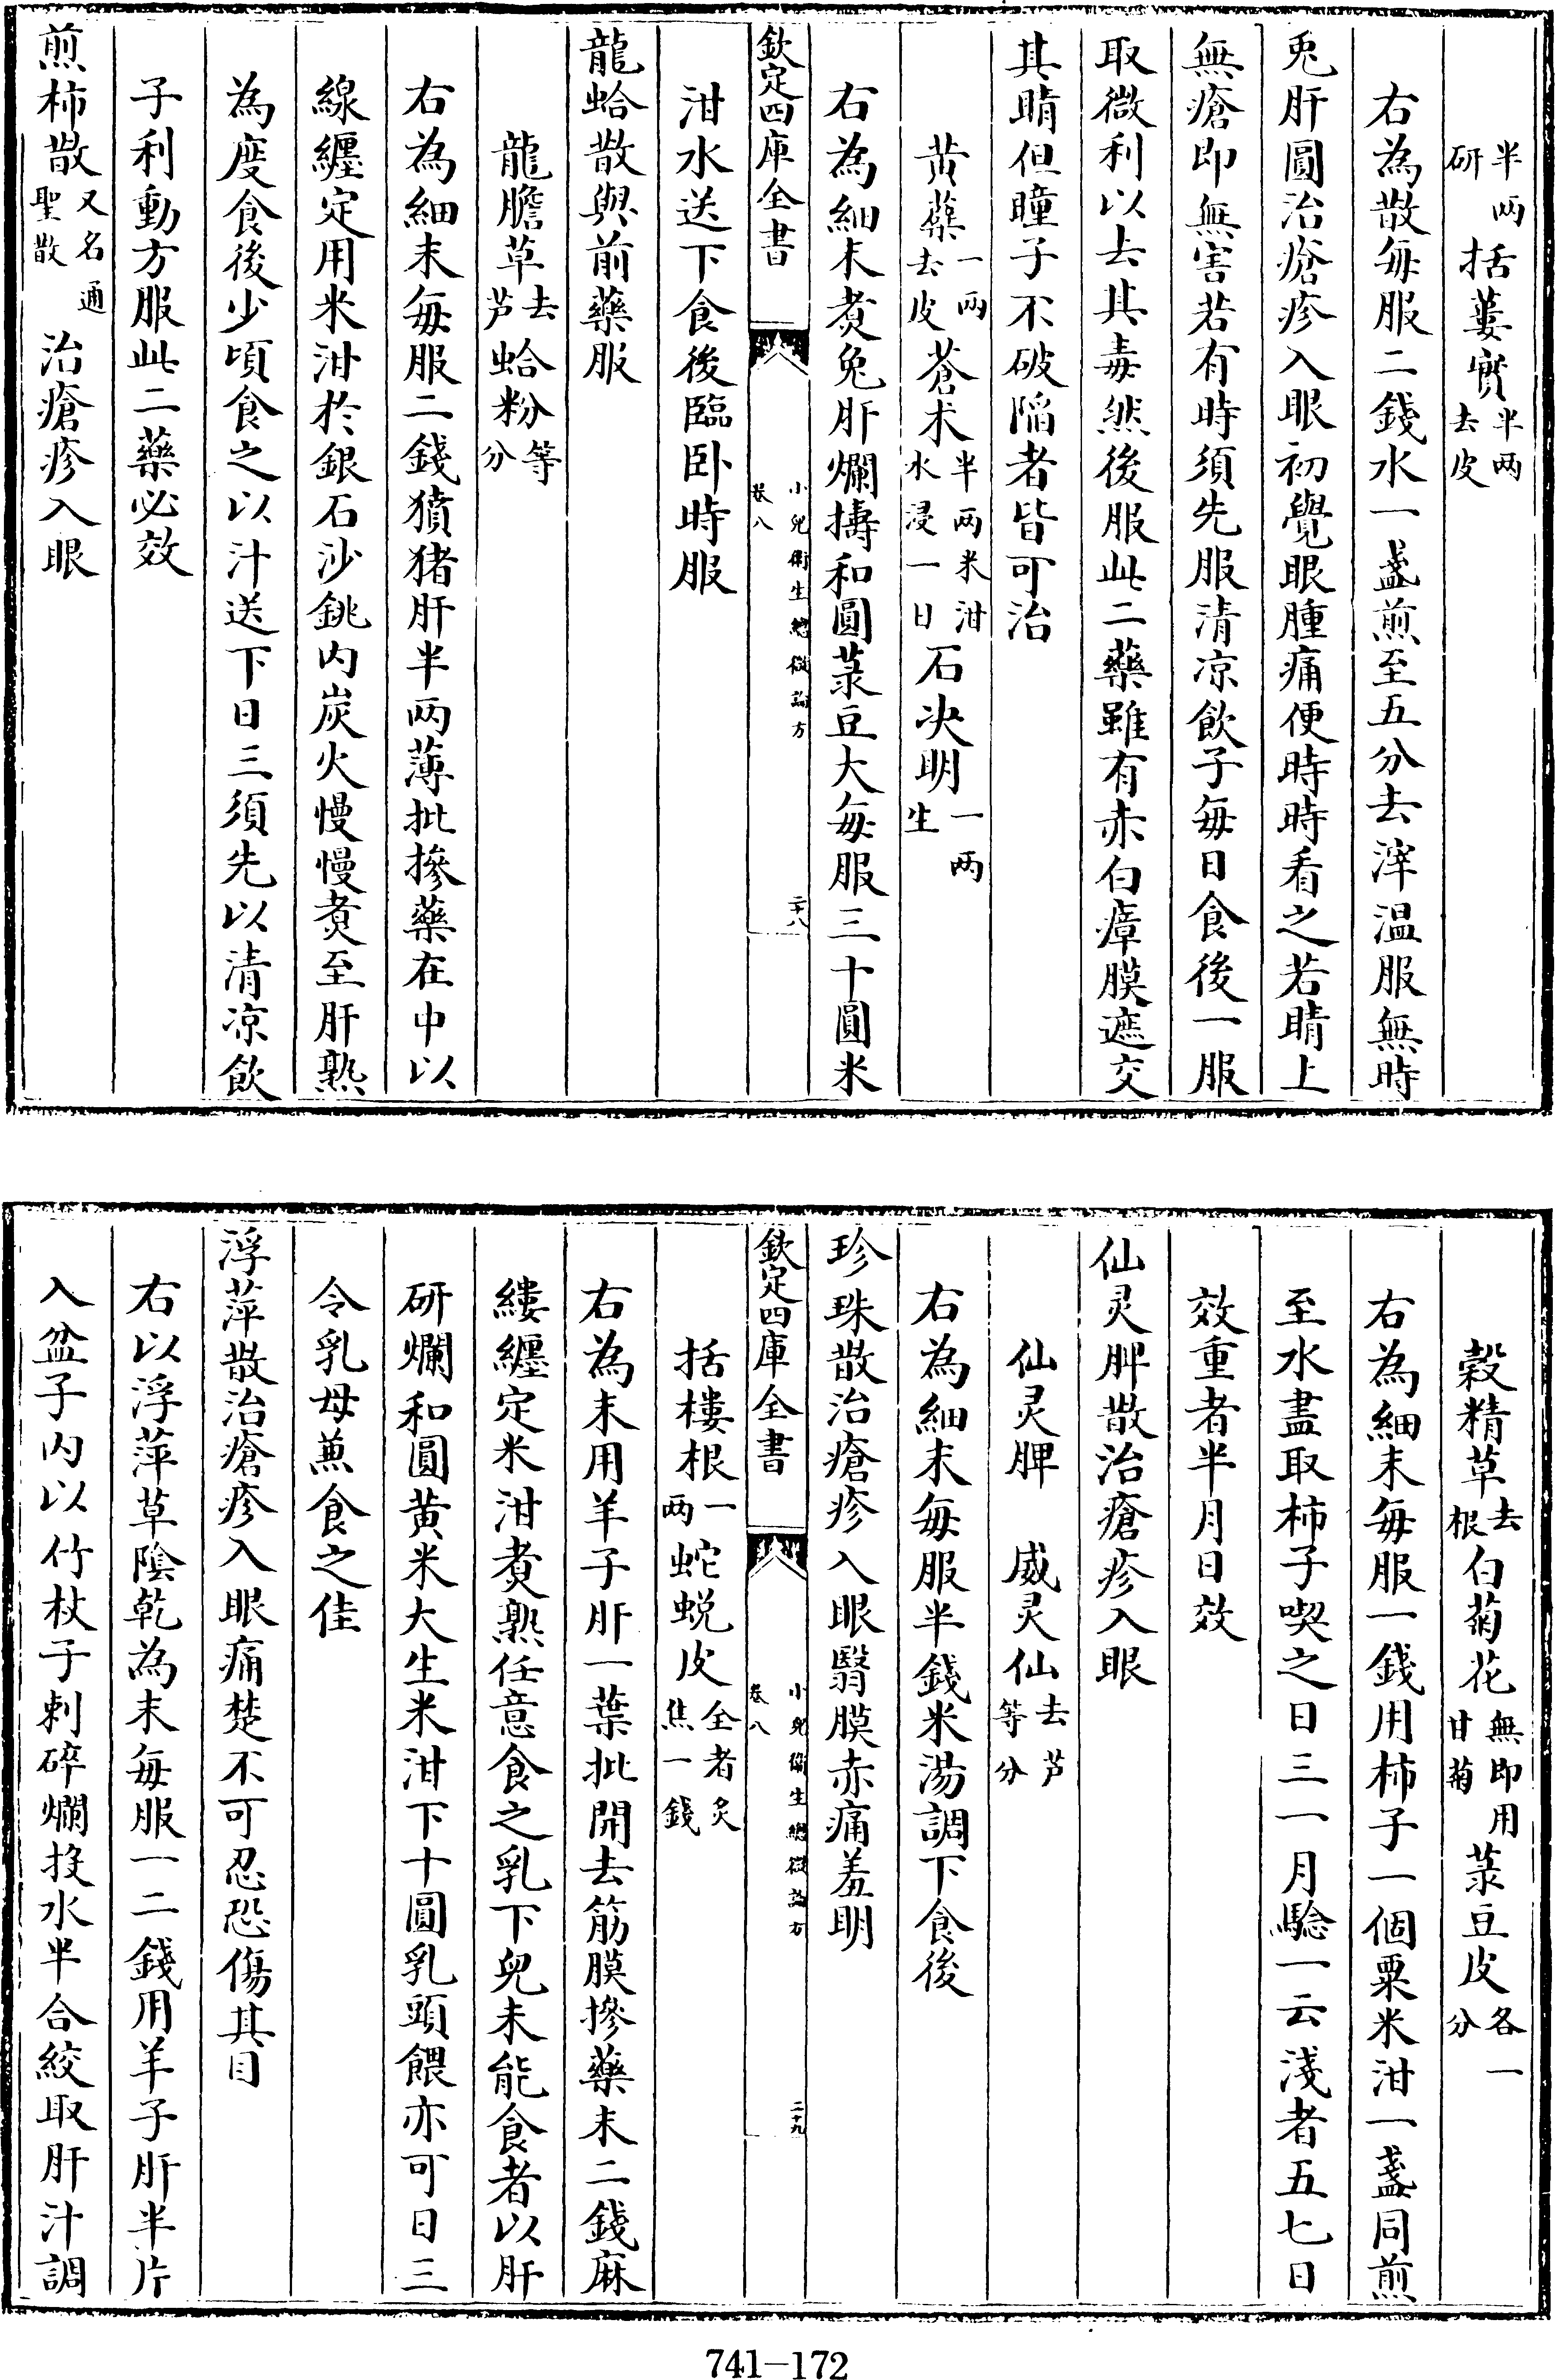 半两研括蔞實半两去皮
右為散毎服二錢水一盞煎至五分去滓温服無時
兎肝圓治瘡疹入眼初覺眼腫痛便時時看之若睛上
無瘡即無害若有時須先服清凉飲子毎日食後一服
取微利以去其毒然後服此二藥雖有赤白瘴膜遮交
其睛但瞳子不破陷者皆可治
黄蘗一两去皮蒼术半两米泔水浸一日石决明一两生
右為細末煮兔肝爛擣和圓菉豆大毎服三十圓米
欽定四庫全書
小兒衛生總微論方
卷八
二十八
泔水送下食後臨卧時服
龍蛤散與前藥服
龍膽草去芦蛤粉等分
右為細末毎服二錢獖猪肝半两薄批摻藥在中以
線纒定用米泔於銀石沙銚内炭火慢慢煮至肝熟
為度食後少頃食之以汁送下日三須先以清凉飲
子利動方服此二藥必效
煎柿散又名通聖散治瘡疹入眼
榖精草去根白菊花無即用甘菊菉豆皮各一分
右為細末毎服一錢用柿子一個粟米泔一盞同煎
至水盡取柿子喫之日三一月驗一云淺者五七日
效重者半月日效
仙灵脾散治瘡疹入眼
仙灵脾 威灵仙去芦等分
右為細末毎服半錢米湯調下食後
珍珠散治瘡疹入眼翳膜赤痛羞明
欽定四庫全書
小兒衛生總微論方
卷八
二十九
括樓根一两蛇蜕皮全者炙焦一錢
右為末用羊子肝一葉批開去筋膜摻藥末二錢麻
縷纒定米泔煮熟任意食之乳下兒未能食者以肝
研爛和圓黄米大生米泔下十圓乳頭餵亦可日三
令乳母兼食之佳
浮萍散治瘡疹入眼痛楚不可忍恐傷其目
右以浮萍草隂乾為末毎服一二錢用羊子肝半片
入盆子内以竹杖子刺碎爛投水半合絞取肝汁調
741-172